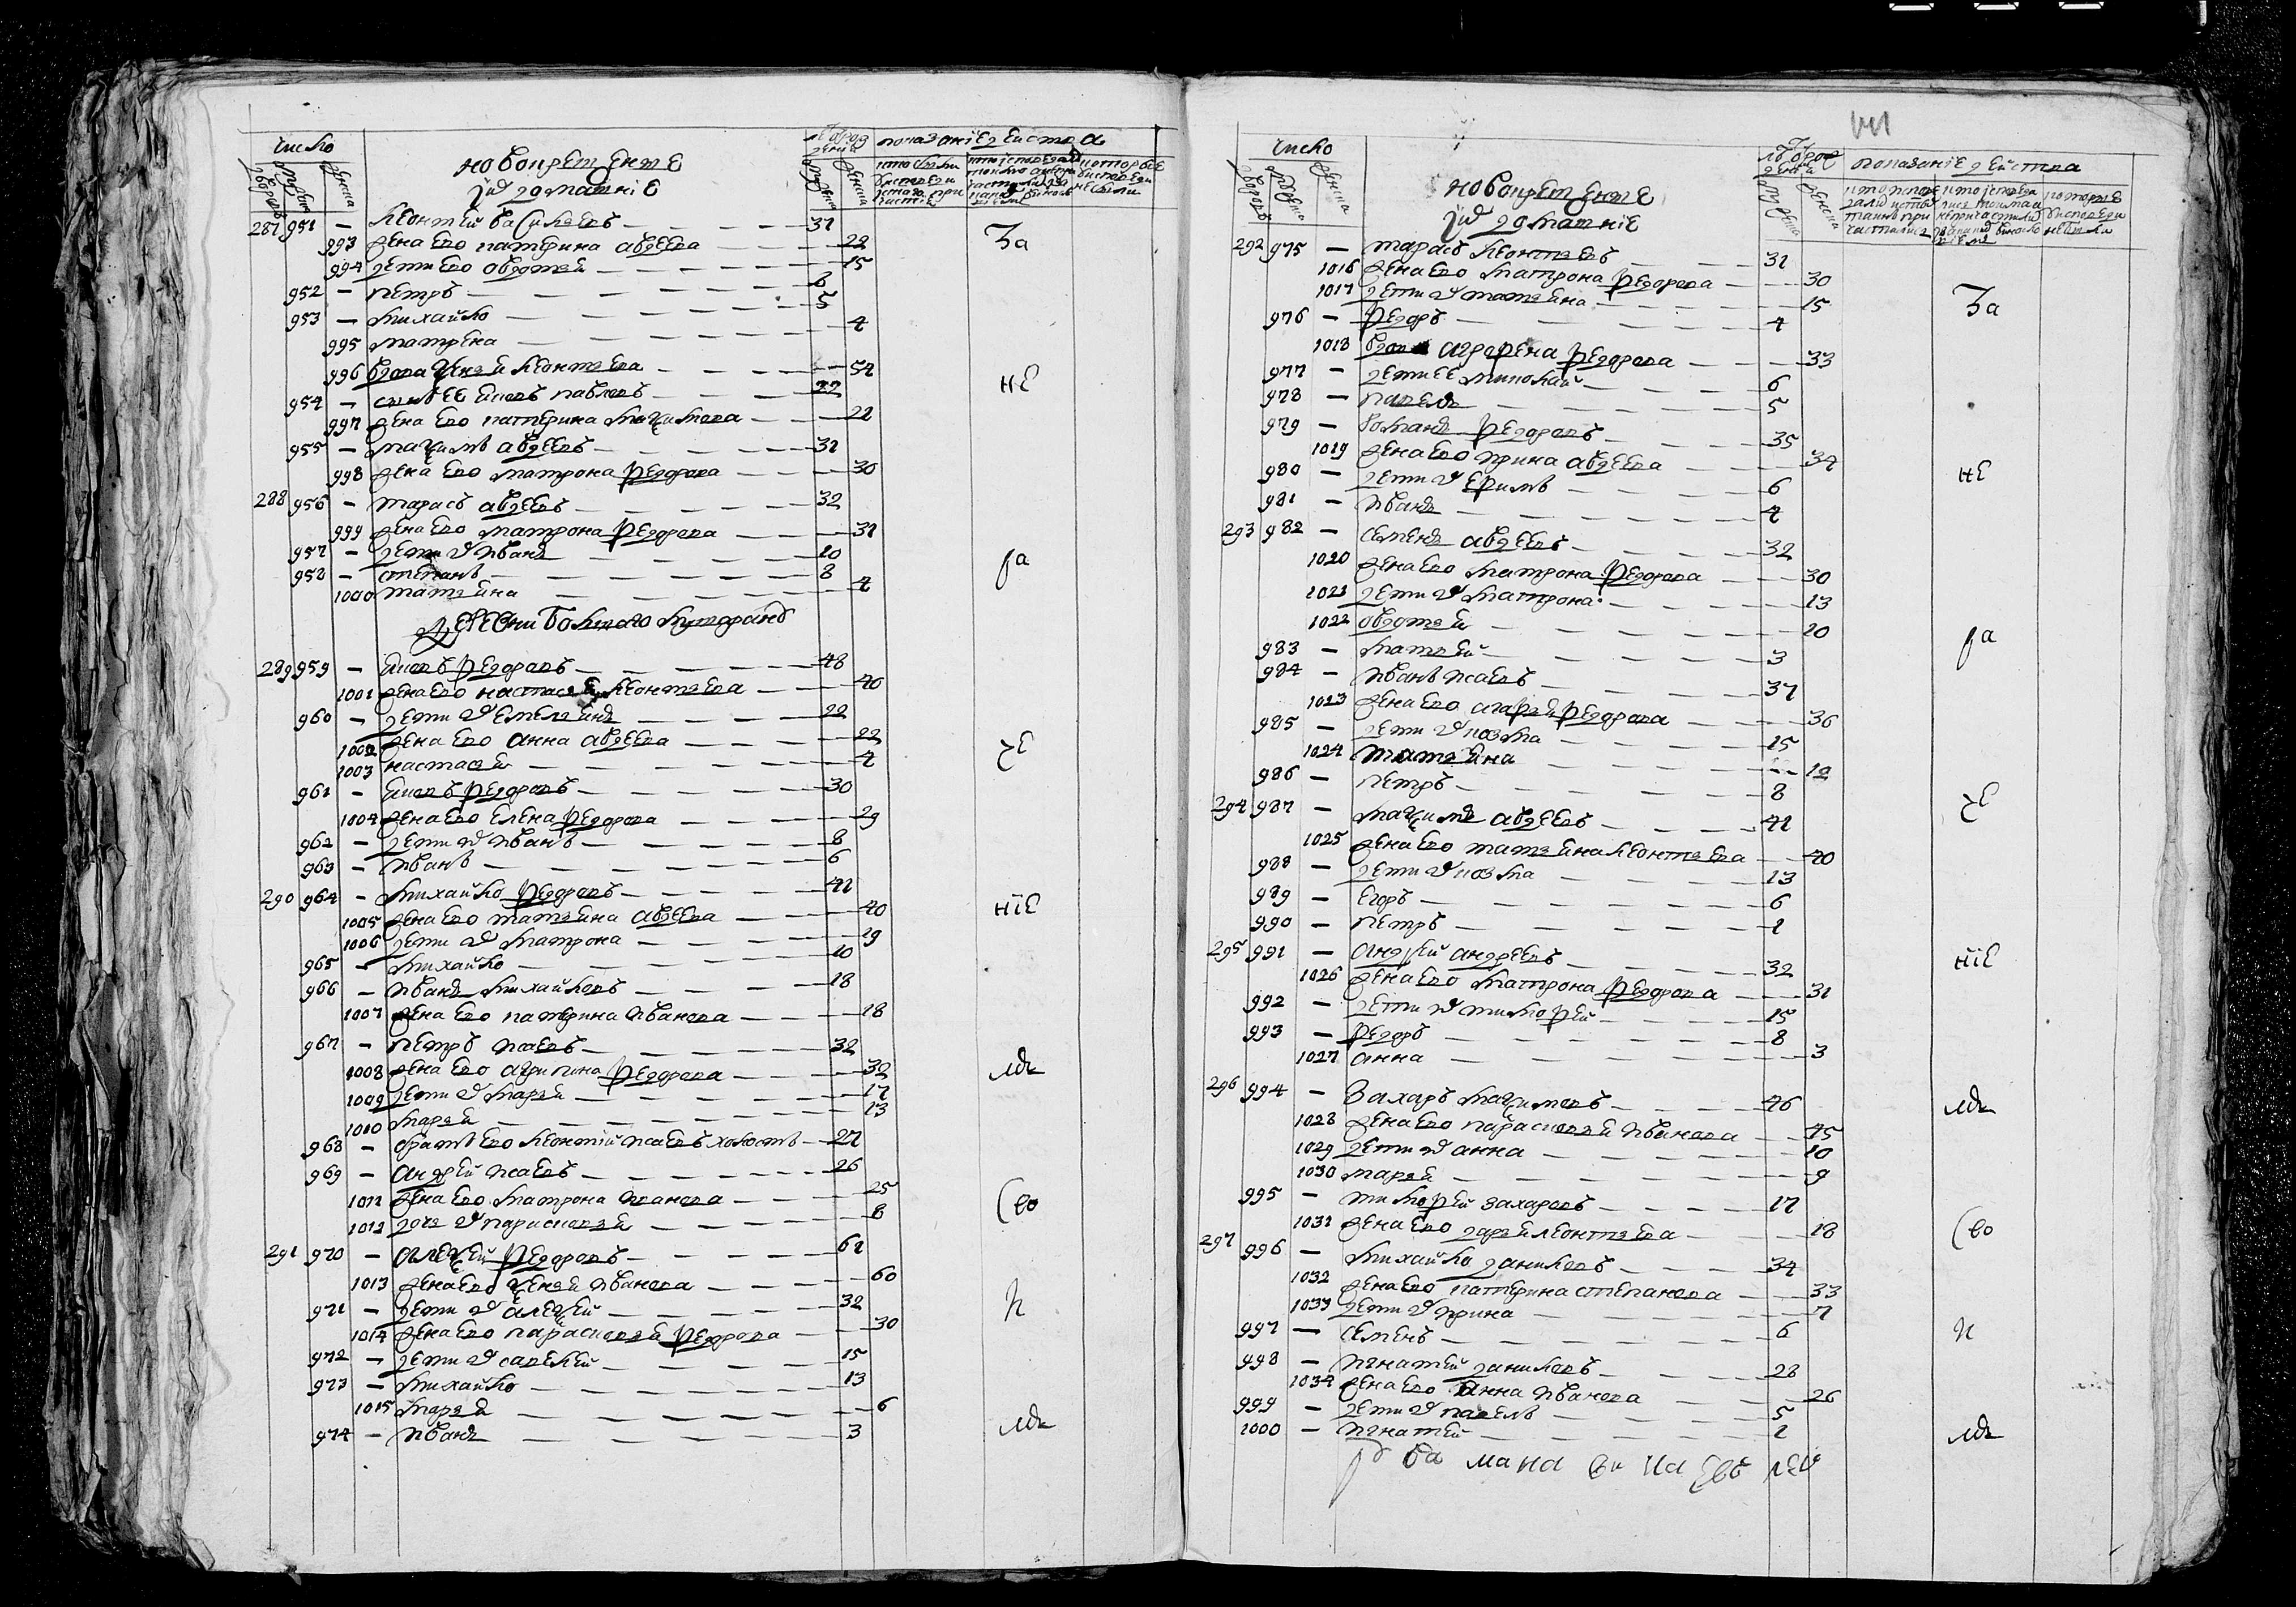 число
новокрещеные
и домашние
показание действа
287 951 — Леонтей Васильевъ 31
993 жена ево катерина авдеева 22
994 дети ево овдотья 15
952 — петръ 6
953 — михайло 5
995 матрена 4
996 вдова ксенья леонтьева 54
954 — сынъ ее яковъ павловъ 22
997 жена ево катерина максимова 22
955 — максимъ авдеевъ 31
998 жена ево матрона федорова 30
288 956 — тарасъ авдеевъ 32
999 жена ево матрона федорова 31
957 — дети их иванъ 10
958 — степанъ 8
1000 татьяна 4
Деревни большаго
289 959 — яковъ федоровъ 48
1001 жена ево настасья леонтьева 40
960 — дети их емельянъ 22
1002 жена ево анна авдеева 22
1003 настасья 4
961 — яковъ федоровъ 30
1004 жена ево елена федорова 29
962 — дети их иванъ 8
963 — иванъ 6
290 964 — михайло федоровъ 41
1005 жена ево татьяна авдеева 40
1006 дети их матрона 19
965 — михайло 10
966 — иванъ михайловъ 18
1007 жена ево катерина иванова 18
967 — петръ исаевъ 32
1008 жена ево агрипина федорова 32
1009 дети их марья 17
1010 марья 13
968 — братъ ево леонтій исаевъ холостъ 27
969 — андрей исаевъ 26
1011 жена ево матрона иванова 25
1012 дочь их парасковья 8
291 970 — алексей федоровъ 61
1013 жена ево ксенья иванова 60
971 — дети их алексей 32
1014 жена ево парасковья федорова 30
972 — дети их савелей 15
973 — михайло 13
1015 марья 6
974 — иванъ 3
За
не
ра
де
ніе
мъ
Сво
и
мъ
число
новокрещеные
и домашние
показание действа
292 975 — тарасъ леонтьевъ 31
1016 жена ево матрона федорова 30
1017 дети их татьяна 15
976 — федоръ 4
1018 вдова агрофена федорова 33
977 — дети ее николай 6
978 — павелъ 5
979 — романъ федоровъ 35
1019 жена ево ирина авдеева 34
980 — дети их ефимъ 6
981 — иванъ 4
293 982 — семенъ авдеевъ 32
1020 жена ево матрона федорова 30
1021 дети их матрона 13
1022 овдотья 10
983 — матвей 3
984 — иванъ исаевъ 37
1023 жена ево агафья федорова 36
985 — дети их козма 15
1024 татьяна 12
986 — петръ 8
294 987 — максимъ авдеевъ 41
1025 жена ево татьяна леонтьева 40
988 — дети их козма 13
989 — егоръ 6
990 — петръ 1
295 991 — андрей андреевъ 32
1026 жена ево матрона федорова 31
992 — дети их тимофей 15
993 — федоръ 8
1027 анна 3
296 994 — Захаръ максимовъ 46
1028 жена ево парасковья иванова 45
1029 дети их анна 10
1030 марья 9
995 — тимофей захаровъ 17
1031 жена ево дарья леонтьева 18
297 996 — михайло даниловъ 34
1032 жена ево катерина степанова 33
1033 дети их ирина 7
997 — семенъ 6
998 — игнатей даниловъ 28
1034 жена ево анна иванова 26
999 — дети их павелъ 5
1000 — игнатей 1
За
не
ра
де
ніе
мъ
Сво
и
мъ